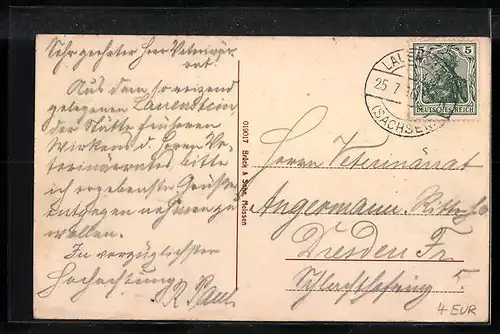 Sehr geehrter Herr Veterinär-
rat.
Aus dem so reizend
gelegenen Lauenstein,
der Stätte früheren
Wirkens d. Herrn Ve-
terinärrates bitte
ich ergebenste Grüsse
entgegen nehmen zu
wollen.
In vorzüglichster
Hochachtung
R. Paul
019017 Brück & Sohn, Meissen
LAUEN
25.7
(SACHSEN)
5 5
DEUTSCHES REICH
Herrn Veterinärrat
Angermann,
Dresden Fr.
Schlachthofring 5.
4 EUR